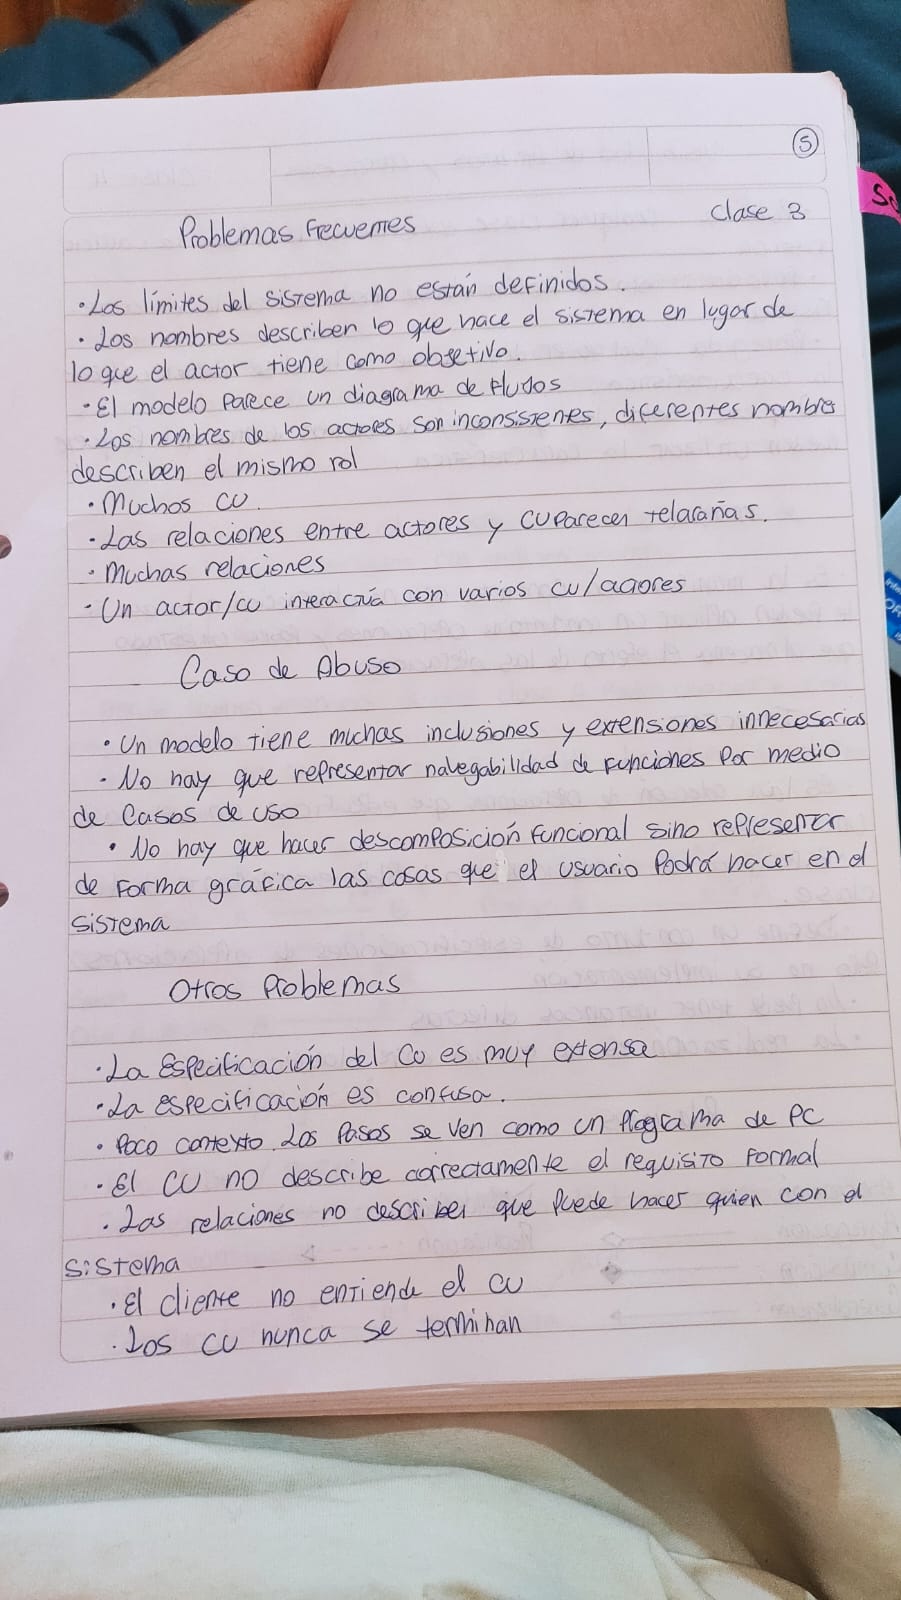 5
Clase 3
Problemas Frecuentes
· Los límites del sistema no están definidos.
· Los nombres describen lo que hace el sistema en lugar de
lo que el actor tiene como objetivo.
· El modelo parece un diagrama de fludos
· Los nombres de los actores son inconsistenes, diferentes nombres
describen el mismo rol
· Muchos CU.
· Las relaciones entre actores y CU parecen telarañas.
· Muchas relaciones
· Un actor/cu interactúa con varios cu/actores
Caso de Abuso
· Un modelo tiene muchas inclusiones y extensiones innecesarias
· No hay que representar navegabilidad de funciones por medio
de Casos de uso
· No hay que hacer descomposición funcional sino representar
de forma gráfica las cosas que el usuario Podrá hacer en el
sistema
Otros Problemas
· La Especificación del CU es muy extensa
· La especificación es confusa.
· Poco contexto. Los Pasos se ven como un programa de PC
· El CU no describe correctamente el requisito formal
· Las relaciones no describen que puede hacer quien con el
sistema
· El cliente no entiende el CU
· Los CU nunca se terminan